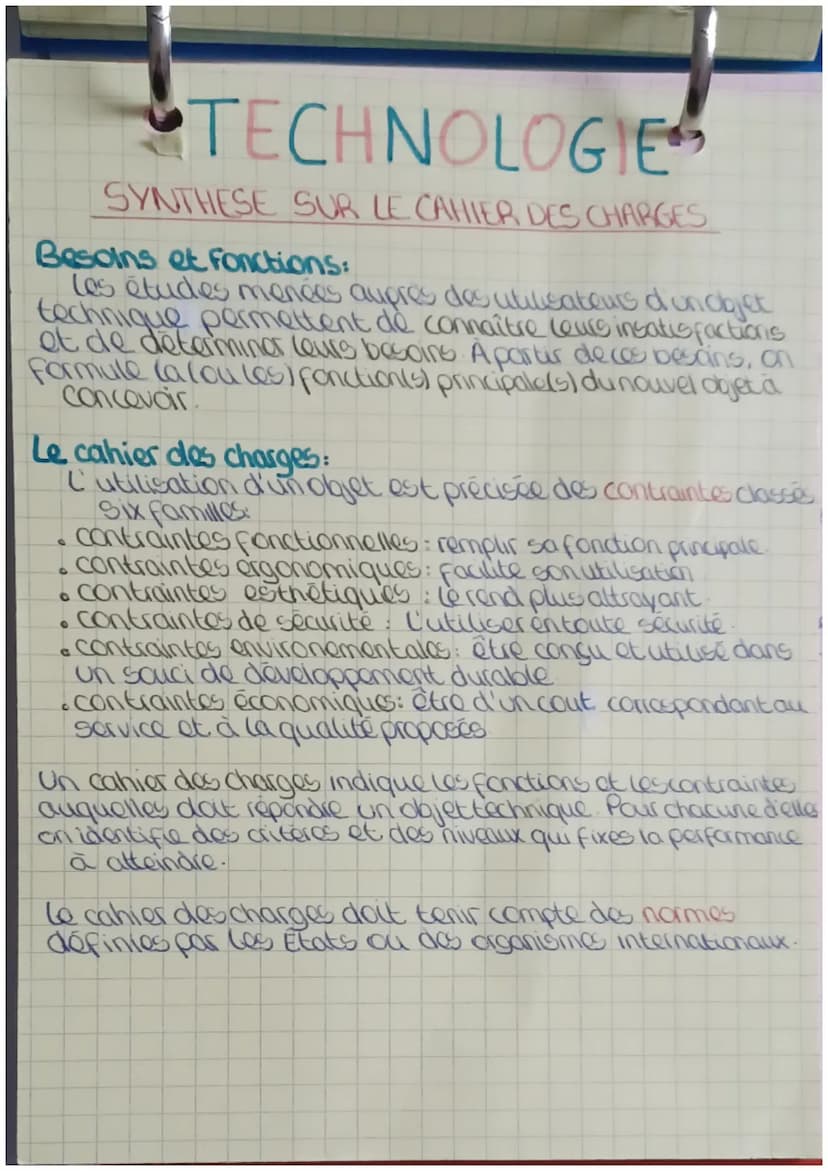 TECHNOLOGIE
SYNTHESE SUR LE CAHIER DES CHARGES
Besoins et fonctions:
Les études menées aupres des utilisateurs d'un objet
technique permettent de connaître leurs insatisfactions
et de déterminer leurs besoins. A partir de ces besoins, on
formule la (ou les) fonction(s) principale(s) du nouvel objet à
concevoir.
Le cahier des charges:
L'utilisation d'un objet est précisée des contraintes classés
six familles:
• contraintes fonctionnelles: remplir sa fonction principale.
• contraintes ergonomiques: facilite son utilisation
• contraintes esthétiques: le rend plus attrayant.
• contraintes de sécurité: L'utiliser en toute sécurité.
• contraintes environementales: être conçu et utilisé dans
un souci de développement durable.
• contraintes économiques: être d'un cout correspondant au
service et à la qualité proposés.
Un cahier des charges indique les fonctions et les contraintes
auquelles doit répondre un objet technique. Pour chacune d'elles
on identifie des critères et des niveaux qui fixes la performance
à atteindre.
Le cahier des charges doit tenir compte des normes
définies par les États ou des organismes internationaux.